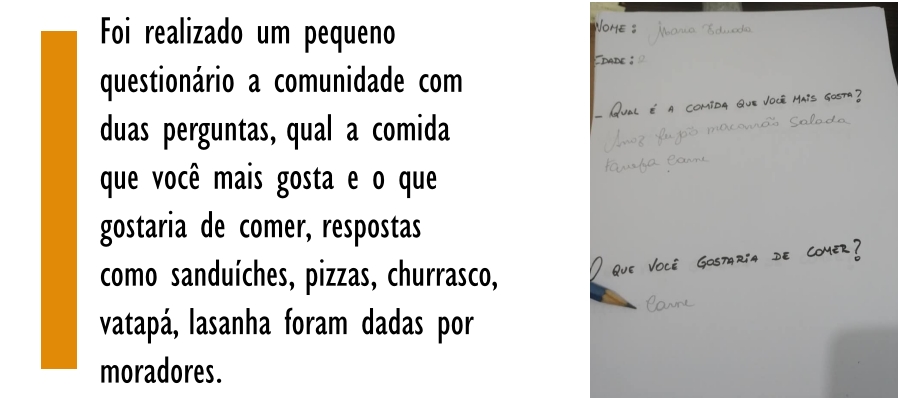 Foi realizado um pequeno
questionário a comunidade com
duas perguntas, qual a comida
que você mais gosta e o que
gostaria de comer, respostas
como sanduíches, pizzas, churrasco,
vatapá, lasanha foram dadas por
moradores.
NOME: Maria Eduarda
IDADE:
- QUAL É A COMIDA QUE VOCÊ MAIS GOSTA?
feijão macarrão Salada
Carne
O QUE VOCÊ GOSTARIA DE COMER?
Carne